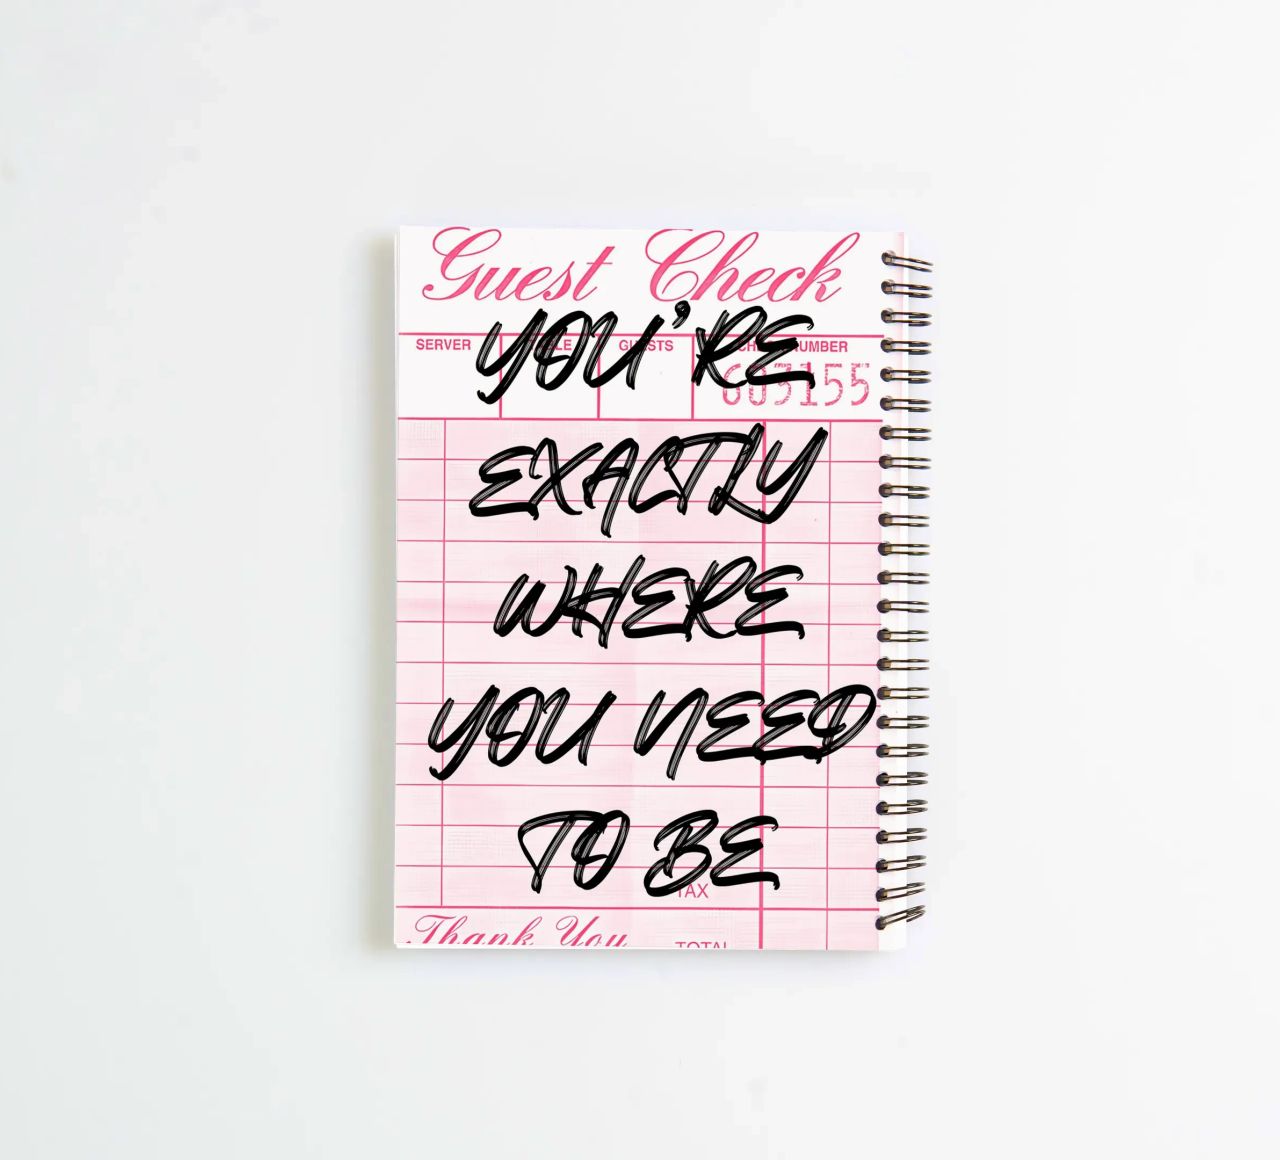 Guest Check
YOU'RE
SERVER GUESTS NUMBER
603155
EXACTLY
WHERE
YOU NEED
TO BE
TAX
Thank You
TOTAL